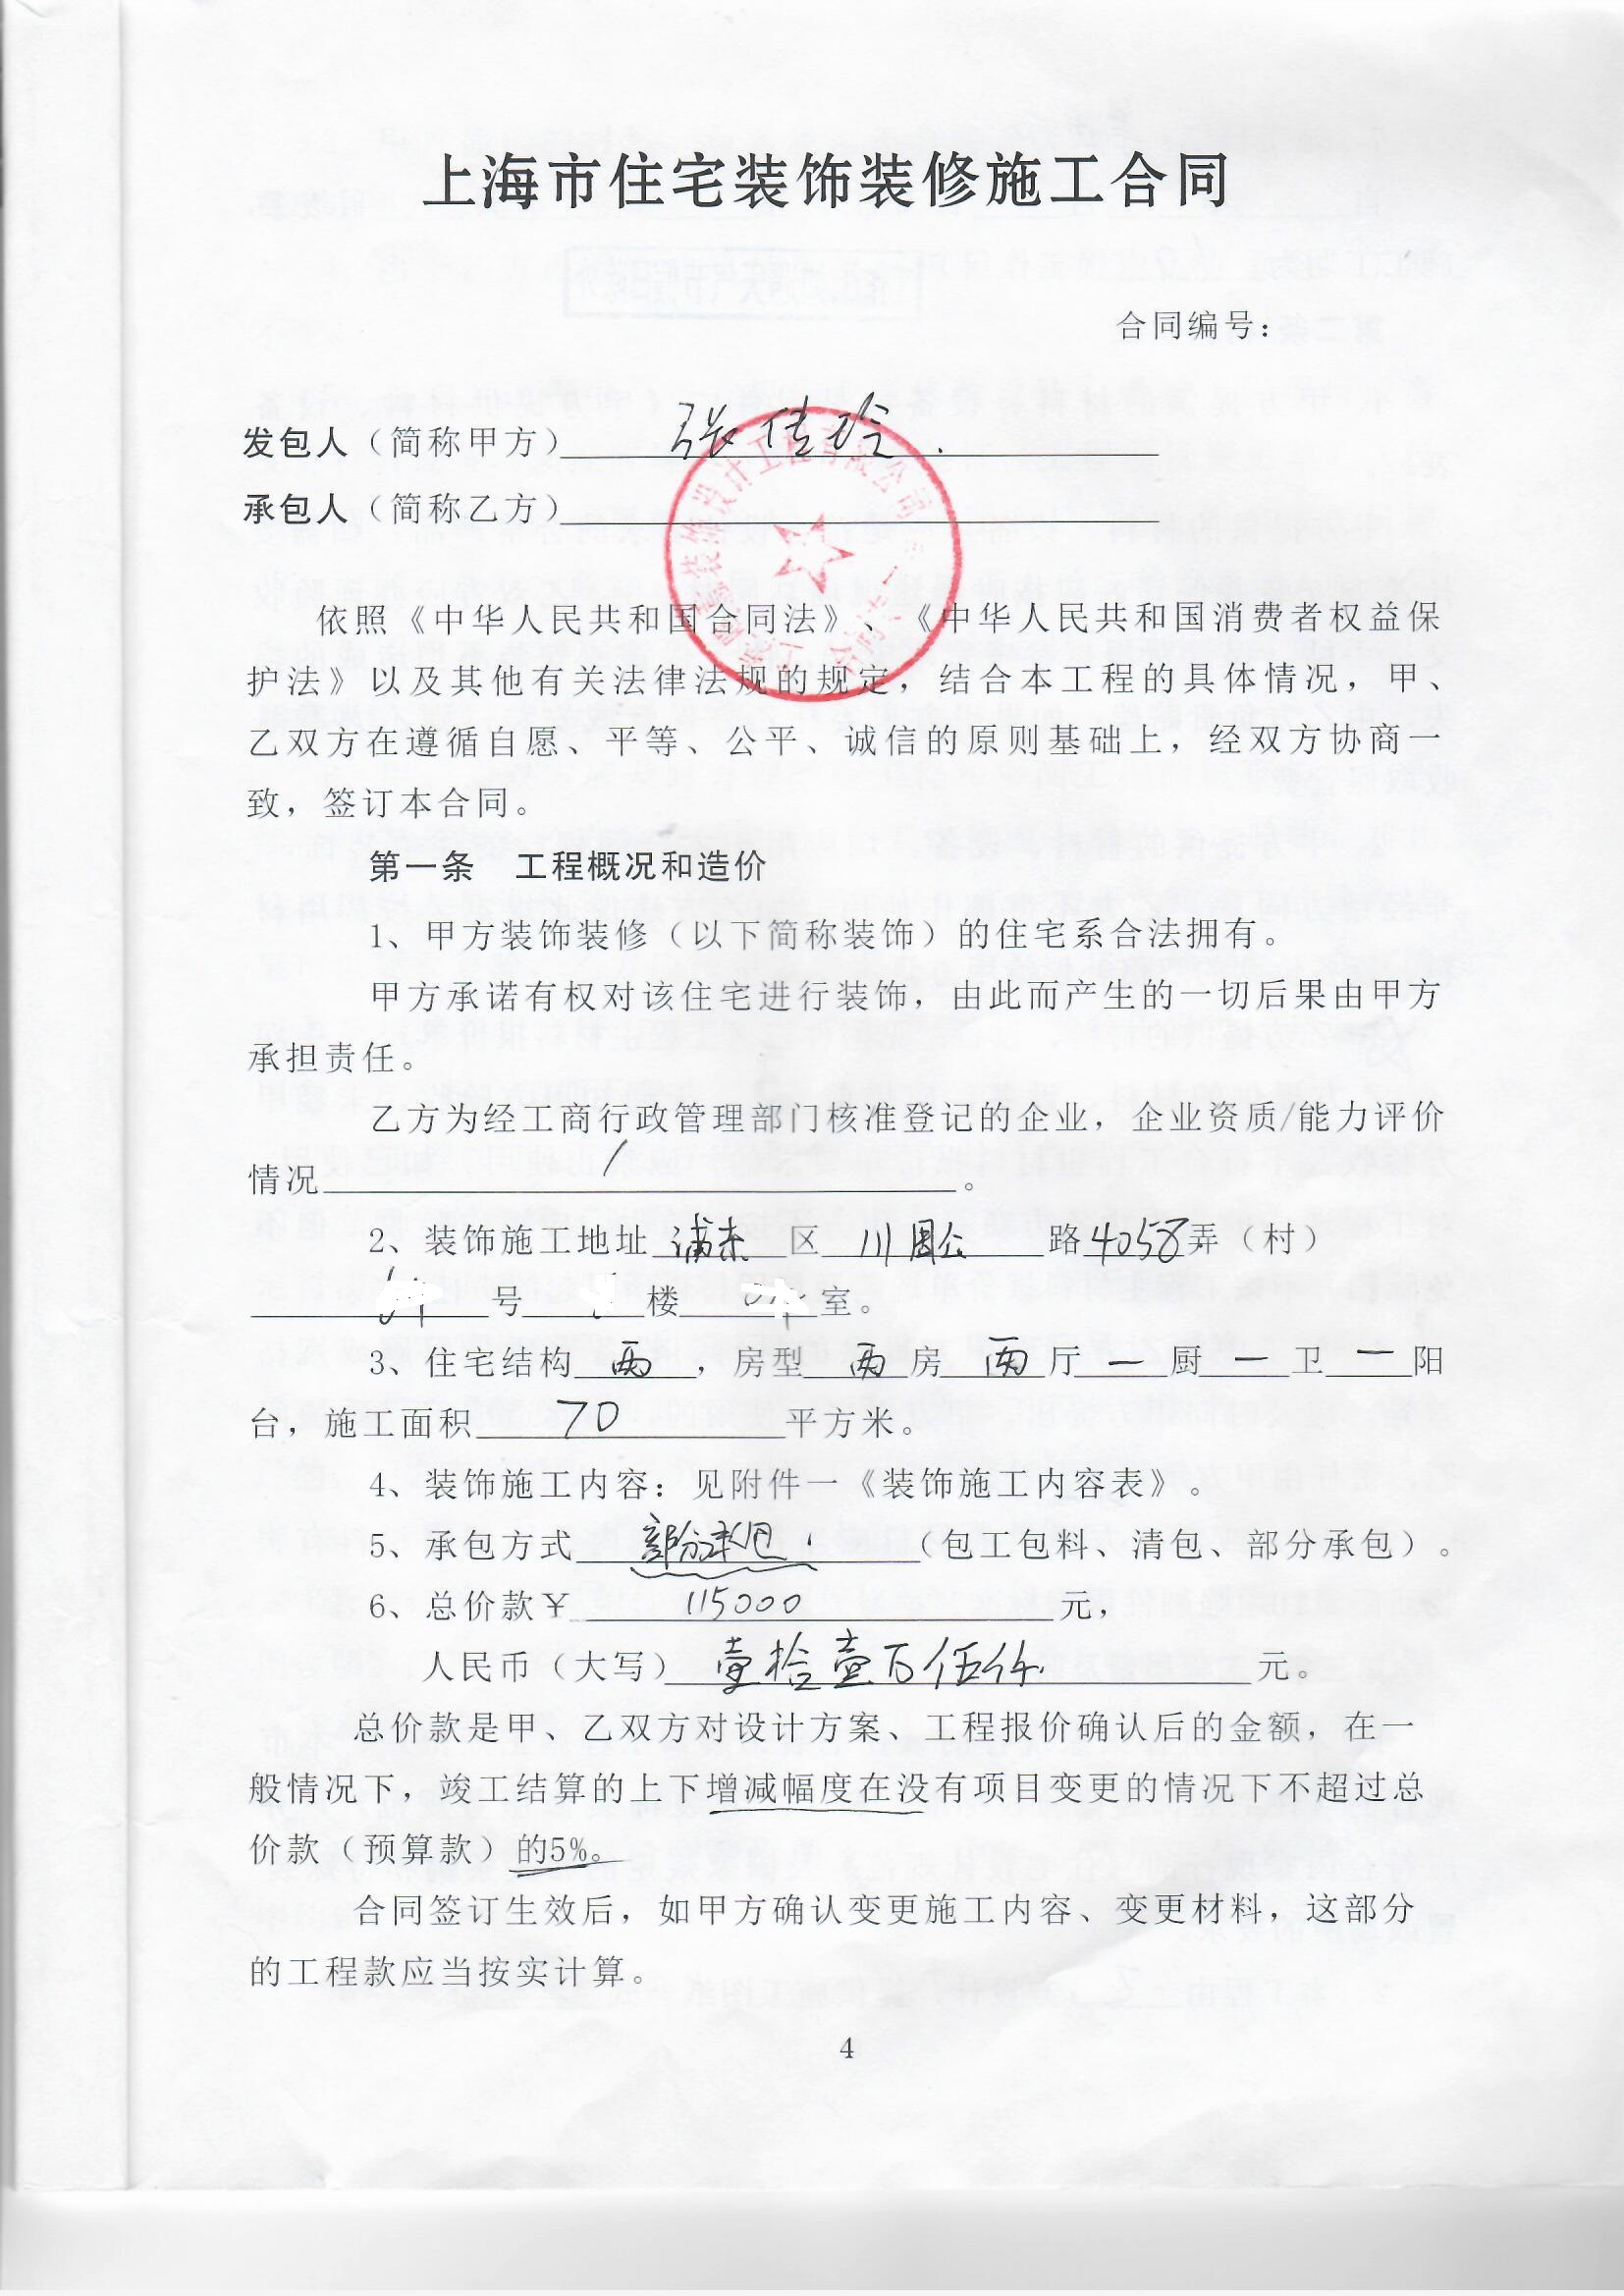 上海市住宅装饰装修施工合同
合同编号：
发包人（简称甲方）张佳玲.
承包人（简称乙方）
装饰设计工程有限公司
合同专
依照《中华人民共和国合同法》、《中华人民共和国消费者权益保
护法》以及其他有关法律法规的规定，结合本工程的具体情况，甲、
乙双方在遵循自愿、平等、公平、诚信的原则基础上，经双方协商一
致，签订本合同。
第一条 工程概况和造价
1、甲方装饰装修（以下简称装饰）的住宅系合法拥有。
甲方承诺有权对该住宅进行装饰，由此而产生的一切后果由甲方
承担责任。
乙方为经工商行政管理部门核准登记的企业，企业资质/能力评价
情况 / 。
2、装饰施工地址 浦东 区 川周公 路 4058 弄（村）
号 楼 室。
3、住宅结构 两 ，房型 两 房 两 厅 一 厨 一 卫 一 阳
台，施工面积 70 平方米。
4、装饰施工内容：见附件一《装饰施工内容表》。
5、承包方式 部分承包 （包工包料、清包、部分承包）。
6、总价款￥ 115000 元，
人民币（大写） 壹拾壹万伍仟 元。
总价款是甲、乙双方对设计方案、工程报价确认后的金额，在一
般情况下，竣工结算的上下增减幅度在没有项目变更的情况下不超过总
价款（预算款）的5%。
合同签订生效后，如甲方确认变更施工内容、变更材料，这部分
的工程款应当按实计算。
4